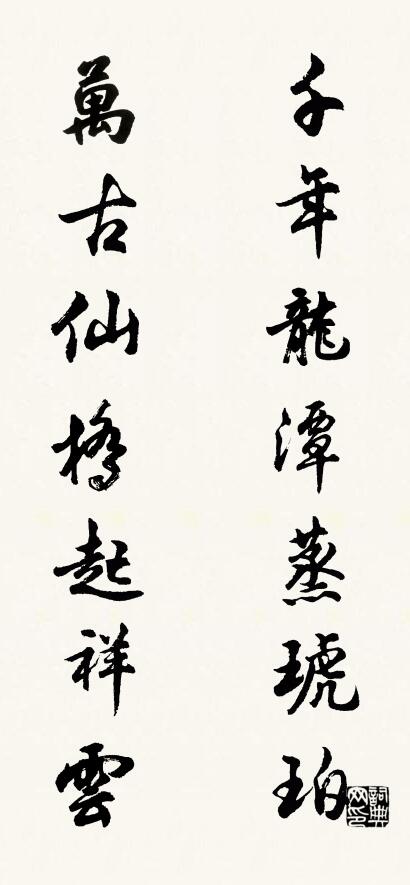 千年龍潭蒸琥珀
萬古仙橋起祥雲
詞典
网印